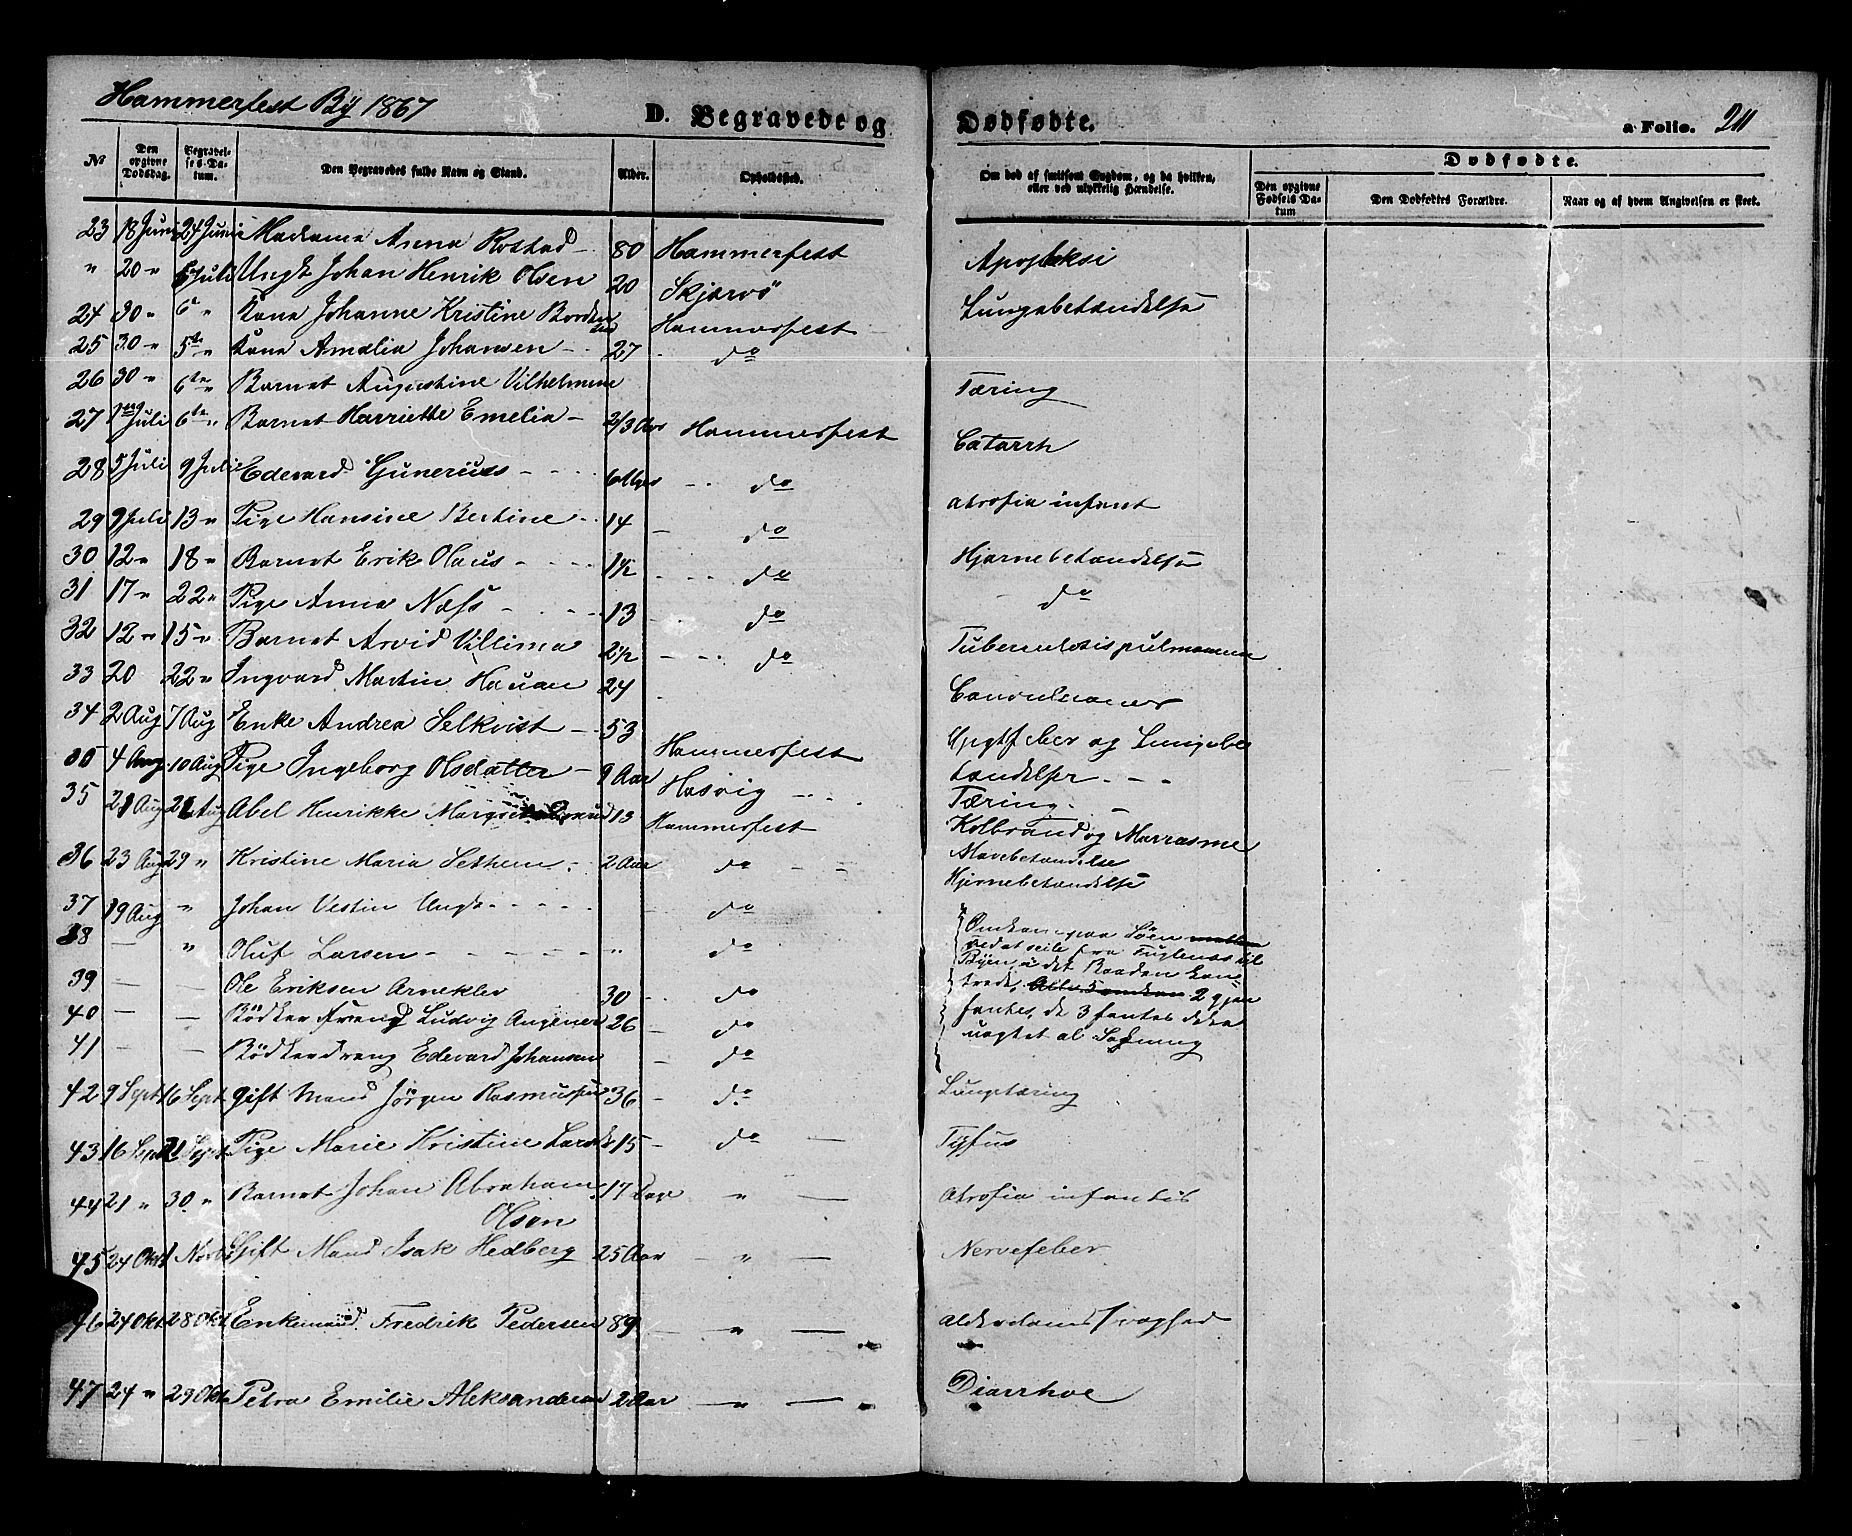 Hammerfest By 1867
D. Begravede og Dødfødte. a Folio. 211
No
Den opgivne Dødsdag.
Begravelses-Datum.
Den Begravedes fulde Navn og Stand.
Alder.
Opholdssted.
Om død af smitsom Sygdom, og da hvilken, eller ved ulykkelig Hændelse.
Dødfødte.
Den opgivne Fødsels Datum
Den Dødfødtes Forældre.
Naar og af hvem Angivelsen er skeet.
23 18 Juni 24 Juni Madame Anna Rostad 80 Hammerfest Apopleksi
" 20 " 5 Juli Ungk Johan Henrik Olsen 20 Skjærvö
24 30 " 6 " Kone Johanne Kristine Hammerfest Lungebetændelse
25 30 " 5te " Kone Amalia Johansen 27 do
26 30 " 6te " Barnet Augustine Vilhelmine Tæring
27 1ste Juli 6te " Barnet Harriette Emelia 2/3 Aar Hammerfest Catarrh
28 5 Juli 9 Juli Edevard Gunerius 6 Mndr do
29 9 Juli 13 " Pige Hansine Bertine 14 do atrofia infant
30 12 " 18 " Barnet Erik Olaus 1½ do Hjernebetændelse
31 17 " 22 " Pige Anna Næss 13 do do
32 12 " 15 " Barnet Arvid Villima 2½ do Tuberculosis pulmonum
33 20 22 " Ingvard Martin Hauan 24 Convulsioner
34 2 Aug 7 Aug Enke Andrea Selkvist 53 Hammerfest feber og Lungebe
35 4 Aug 10 Aug Pige Ingeborg Olsdatter 9 Aar Hasvig tændelse
35 21 Aug 26 Aug Abel Henrikke 13 Hammerfest Tæring
Kolbrand og Marrasme
36 23 Aug 29 " Kristine Maria Sethem 2 Aar do Mavebetændelse
Hjernebetændelse
37 19 Aug " Johan Vestin Ungk do
38 — " Oluf Larsen " do
39 — — Ole Eriksen Arneklev 30 do
40 — — Bödker Ludvig 26 do
41 — — Bödkerdreng Edevard Johansen do
Omkom paa Söen mellem
ved at seile fra Fuglenes til
Byen, i det Baaden kan
trede, 2 gjen
fantes, de 3 fantes ikke
uagtet al Sögning
42 9 Sept 16 Sept gift Mand Jörgen Rasmussen 36 do Lungetæring
43 16 Sept 21 Sept Pige Marie Kristine 15 do — Tyfus
44 21 " 30 " Barnet Johan Abraham 17 Dage " — Atrofia infantis
Olsen
45 24 Okt 1 Nov Gift Mand Isak Hedberg 25 Aar " — Nervefeber
46 24 Okt 28 Okt Enkemand Fredrik Pedersen 89 — " — Alderdomssvaghed
47 24 " 29 Okt Petra Emilie Aleksandersen 2 Aar — " — Diarrhoe